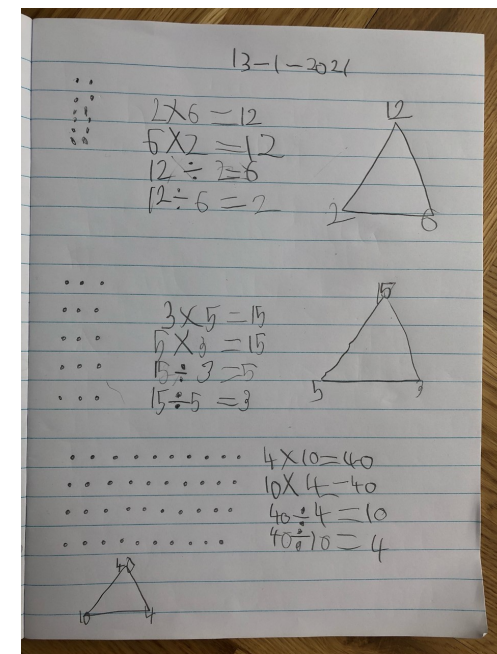 13-1-2021
2×6=12
12
6×2=12
12÷2=6
12÷6=2
2 6
15
3×5=15
5×3=15
15÷3=5
15÷5=3
5 3
4×10=40
10×4=40
40÷4=10
40÷10=4
40
10 4